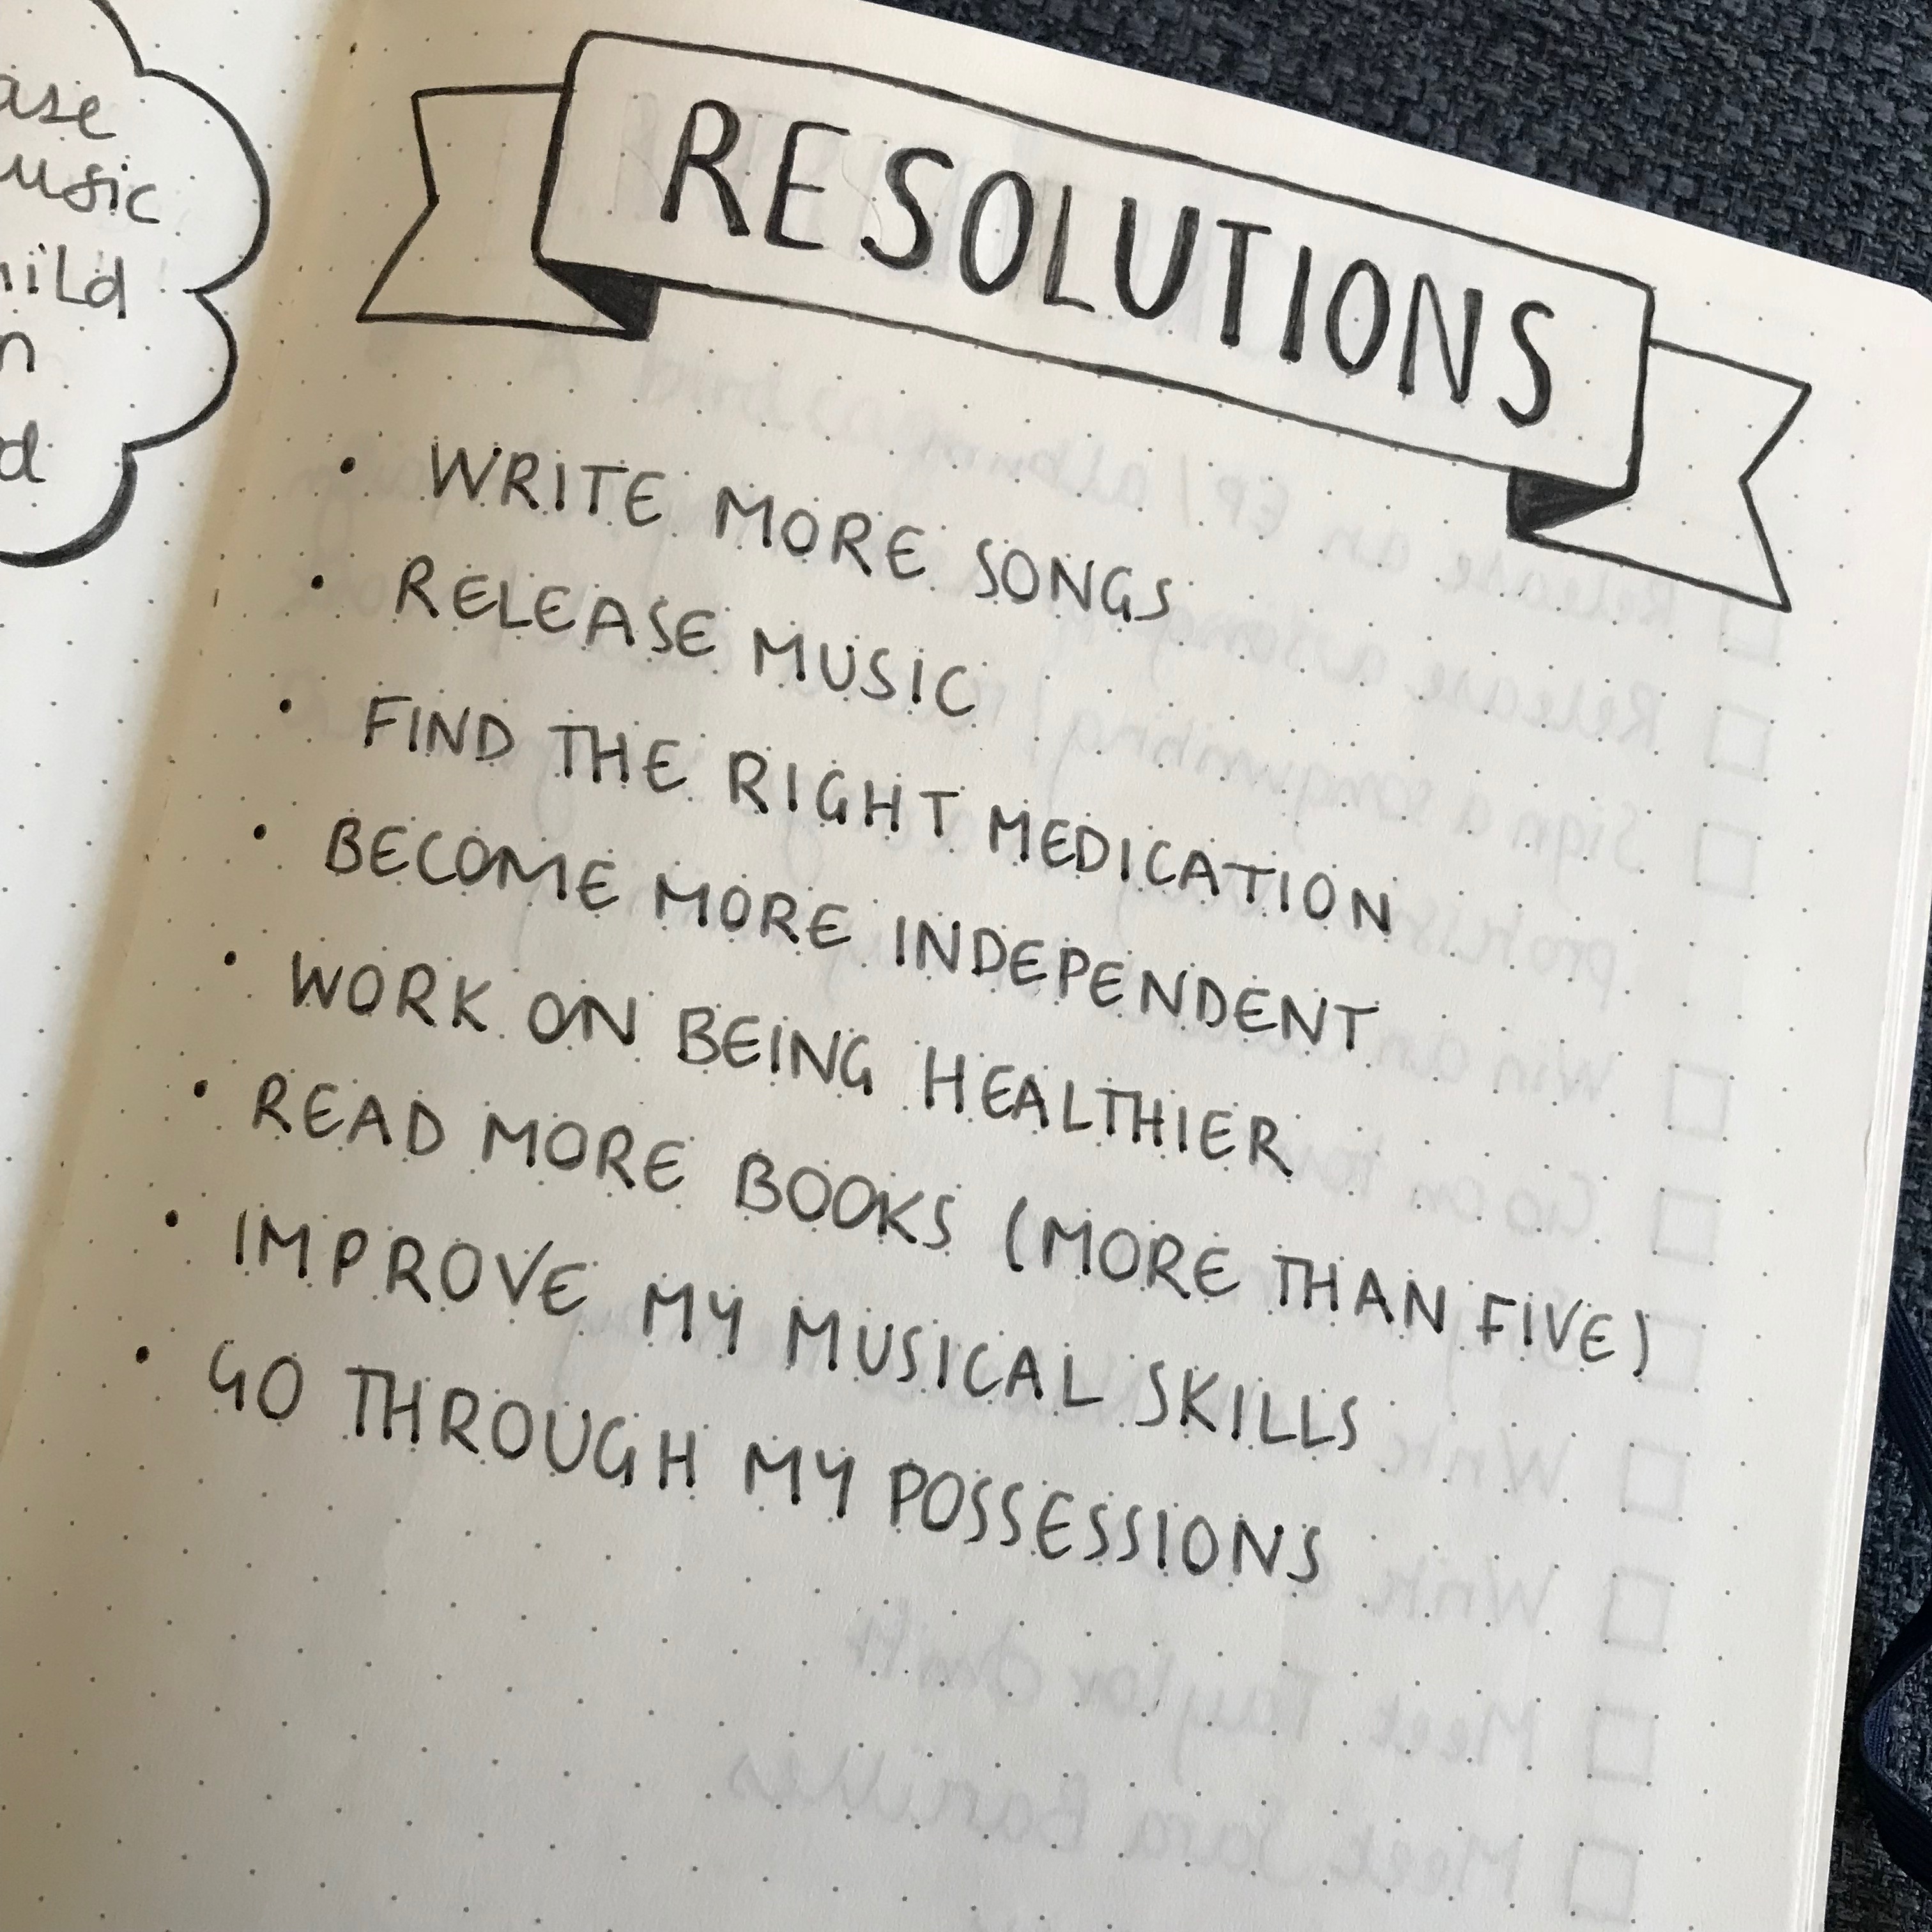 ase
usic
hild
n
d
RESOLUTIONS
• WRITE MORE SONGS
• RELEASE MUSIC
• FIND THE RIGHT MEDICATION
• BECOME MORE INDEPENDENT
• WORK ON BEING HEALTHIER
• READ MORE BOOKS (MORE THAN FIVE)
• IMPROVE MY MUSICAL SKILLS
• GO THROUGH MY POSSESSIONS